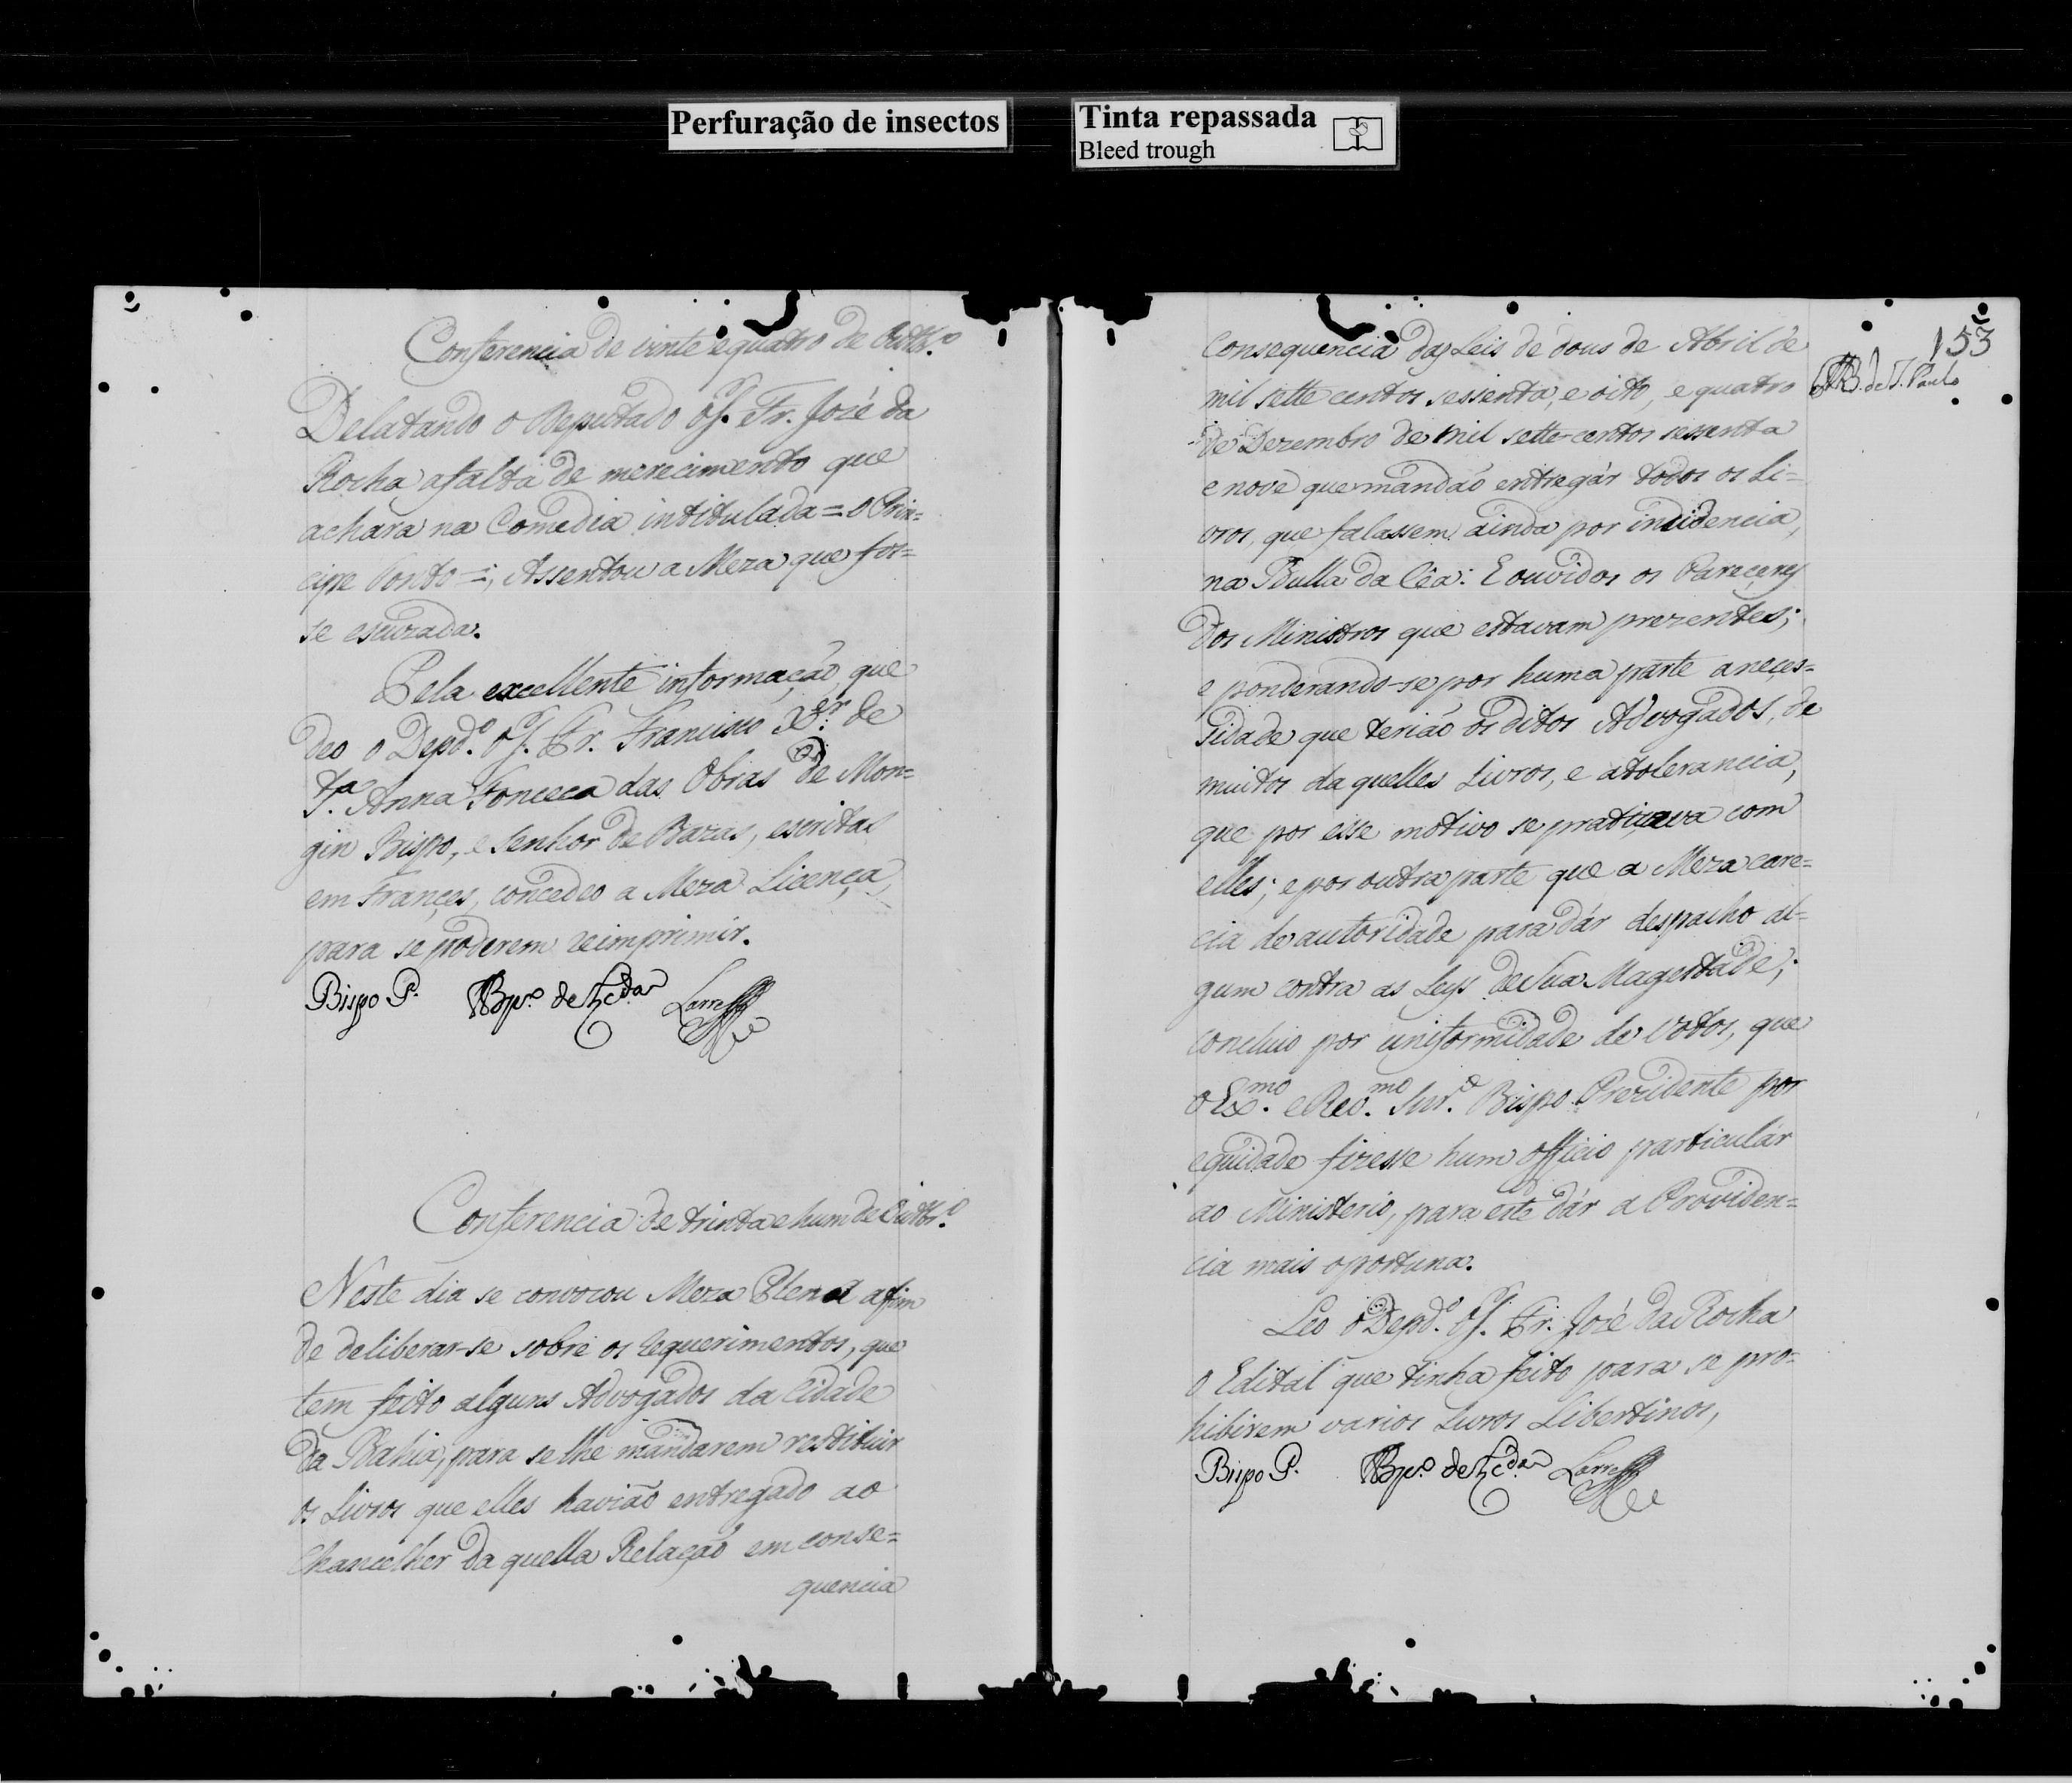 Perfuração de insectos
Tinta repassada
Bleed trough
Conferencia de vinte e quatro de Outbr.º
Relatando o Deputado o P. Fr. José da
Rocha a falta de merecimento que
achara na Comedia intitulada = O Prin=
cipe Ponto =; Assentou a Meza que fos=
se escuzada.
Pela excellente informação, que
deo o Depd.º o P. Fr. Francisco X.er de
S.ta Anna Fonceca das Obras de Mon=
gin Bispo, e Senhor de Bazas, escritas
em Françes, concedeo a Meza Licença
para se poderem reimprimir.
Bispo P.
Conferencia de trinta e hum de Outbr.º
Neste dia se convocou Meza Plena afim
de deliberar-se sobre os requerimentos, que
tem feito alguns Advogados da Cidade
da Bahia, para se lhe mandarem restituir
os Livros que elles havião entregado ao
Chanceller da quella Relação em conse=
quencia
153
consequencia das Leis de dous de Abril de
mil sette centos sessenta, e oito, e quatro
B. de S. Paulo
de Dezembro de mil sette centos sessenta
e nove que mandão entregár todos os Li=
vros, que falassem ainda por insidencia,
na Bulla da Cêa: E ouvidos os Pareceres
dos Ministros que estavam prezentes;
e ponderando-se por huma parte a neces=
sidade que terião os ditos Advogados, de
muitos da quelles Livros, e a tolerancia,
que por esse motivo se praticava com
elles; e por outra parte que a Meza care=
cia de autoridade para dár despacho al=
gum contra as Leys de Sua Magestade;
concluio por uniformidade de Votos, que
o Ex.mo e Rev.mo Snr.
Bispo Prezidente por
equidade fizesse hum officio particulár
ao Ministerio, para este dár a Providen=
cia mais oportuna.
Leo o Depd.º o P. Fr. José da Rocha
o Edital que tinha feito para se pro=
hibirem varios Livros Libertinos,
Bispo P.